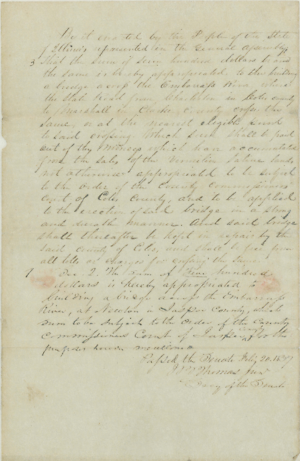 Be it enacted by the People of the State
of Illinois represented in the General Assembly
3 That the sum of Seven hundred dollars be and
the same is hereby appropriated to the building
a bridge across the Embarrass River where
the State Road from Charleston in Coles County
to Marshall in Clark County crosses the
same or at the nearest eligible point
to said crossing Which sum shall be paid
out of any monies which have accumulated
from the sales of the Vermilion Saline lands
not otherwise appropriated to be subject
to the order of the County commissioners
court of Coles County, and to be applied
to the erection of said bridge in a strong
and durable manner And said bridge
shall thereafter be kept in repair by the
said county of Coles and shall be free from
all tolls or charges for crossing the same
Sec 2 The sum of five hundred
dollars is hereby appropriated to
building a bridge across the Embarrass
River, at Newton in Jasper County, which
sum to be subject to the order of the County
Commissioners Court of Jasper County for the
purposes herein mentioned
Passed the Senate Feby 20. 1837
Secy of the Senate